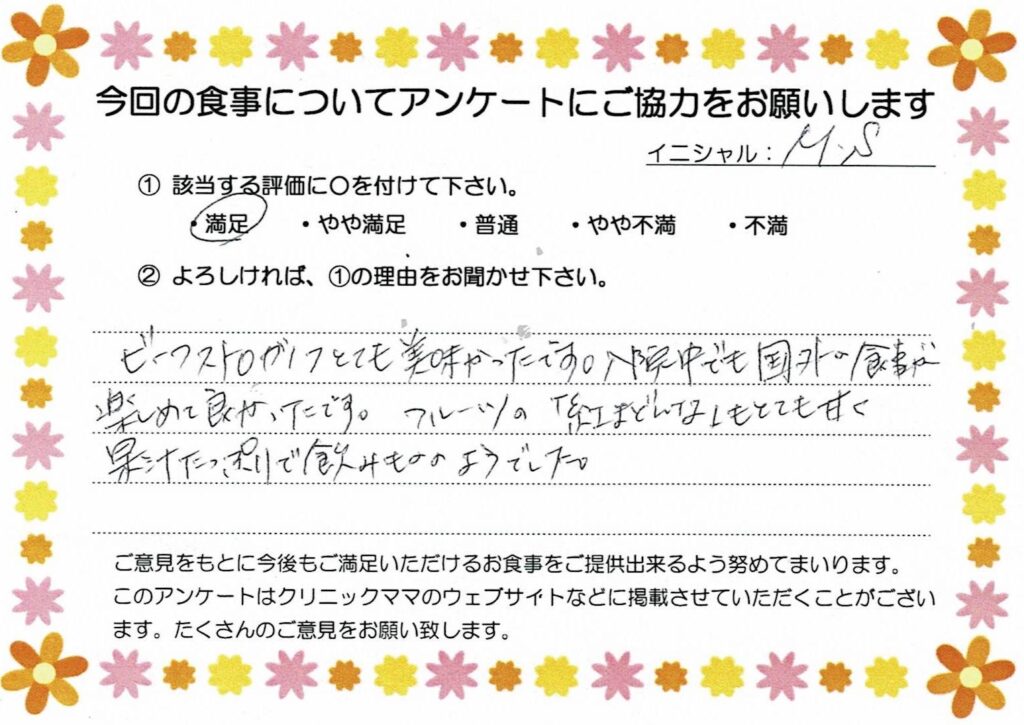 今回の食事についてアンケートにご協力をお願いします
イニシャル：M.S
① 該当する評価に〇を付けて下さい。
・満足 ・やや満足 ・普通 ・やや不満 ・不満
② よろしければ、①の理由をお聞かせ下さい。
ビーフストロガノフとても美味かったです。入院中でも国外の食事が
楽しめて良かったです。 フルーツの「紅まどんな」もとても甘く
果汁たっぷりで飲みもののようでした。
ご意見をもとに今後もご満足いただけるお食事をご提供出来るよう努めてまいります。
このアンケートはクリニックママのウェブサイトなどに掲載させていただくことがござい
ます。たくさんのご意見をお願い致します。